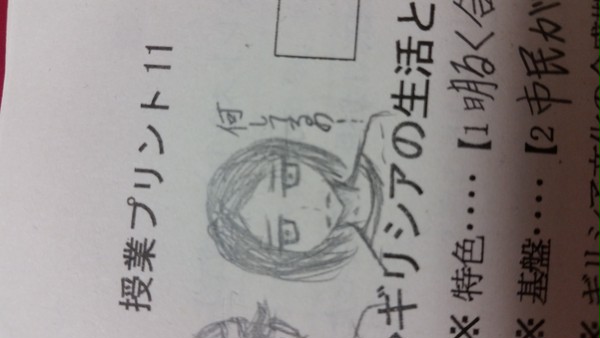 授業プリント11
何してるの……
ギリシアの生活と
※ 特色‥‥【1 明るく合
※ 基盤‥‥【2 市民が
※ ギリシア文化の